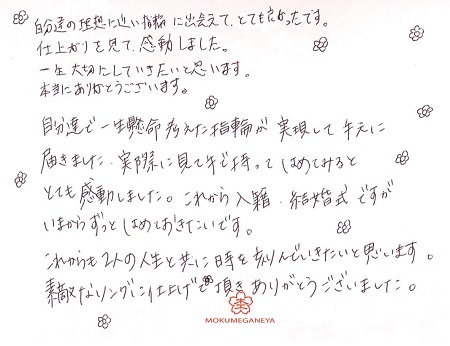 自分達の理想に近い指輪に出会えて、とても良かったです。
仕上がりを見て、感動しました。
一生大切にしていきたいと思います。
本当にありがとうございます。
自分達で一生懸命考えた指輪が実現して手元に
届きました。実際に見て手で持ってはめてみると
とても感動しました。これから入籍、結婚式ですが
いまからずっとはめておきたいです。
これからも2人の人生と共に時を刻んでいきたいと思います。
素敵なリングに仕上げて頂きありがとうございました。
MOKUMEGANEYA